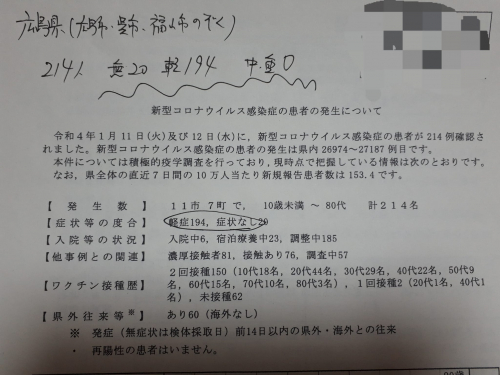 広島県(広島市・呉市、福山市のぞく)
214人 無20 軽194 中・重0
新型コロナウイルス感染症の患者の発生について
令和4年1月11日(火)及び12日(水)に、新型コロナウイルス感染症の患者が214例確認さ
れました。新型コロナウイルス感染症の患者の発生は県内26974~27187例目です。
本件については積極的疫学調査を行っており、現時点で把握している情報は次のとおりです。
なお、県全体の直近7日間の10万人当たり新規報告患者数は153.4です。
【発生数】 11市7町で、10歳未満~80代 計214名
【症状等の度合】 軽症194、症状なし20
【入院等の状況】 入院中6、宿泊療養中23、調整中185
【他事例との関連】 濃厚接触者81、接触あり76、調査中57
2回接種150(10代18名、20代44名、30代29名、40代22名、50代9
【ワクチン接種歴】 名、60代15名、70代10名、80代3名)、1回接種2(20代1名、40代1
名)、未接種62
【県外往来等※】 あり60(海外なし)
※ 発症(無症状は検体採取日)前14日以内の県外・海外との往来
・ 再陽性の患者はいません。